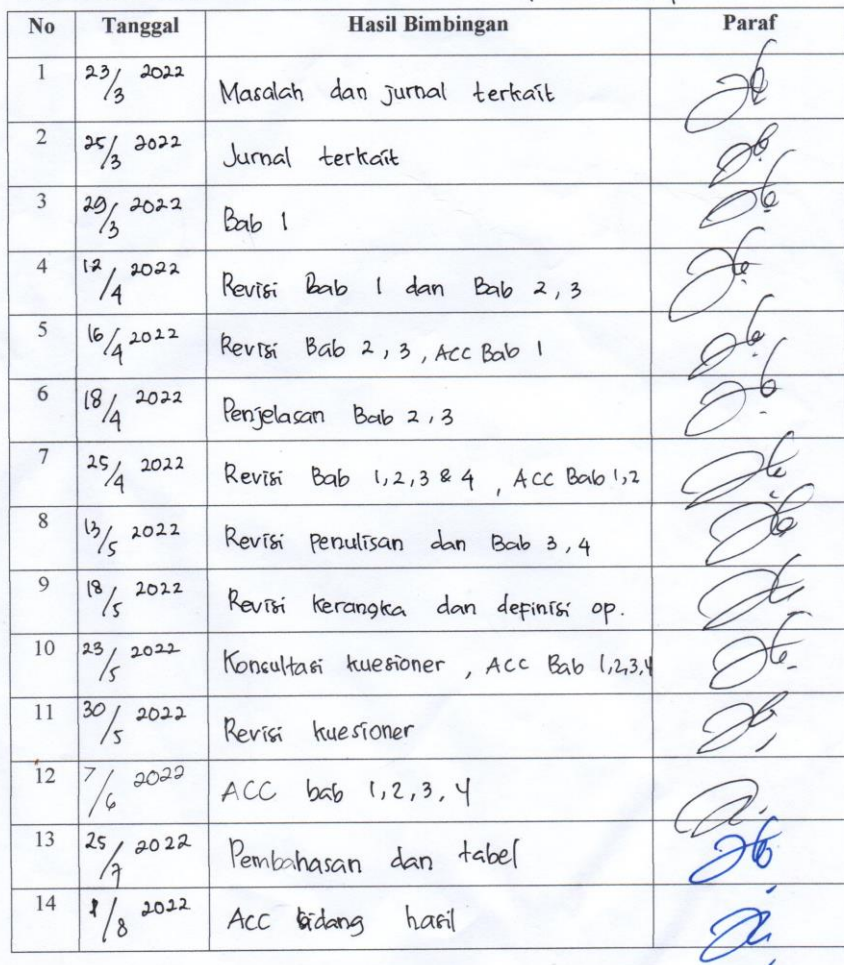 No Tanggal Hasil Bimbingan Paraf
1 23/3 2022 Masalah dan jurnal terkait
2 25/3 2022 Jurnal terkait
3 29/3 2022 Bab 1
4 12/4 2022 Revisi Bab 1 dan Bab 2, 3
5 16/4 2022 Revisi Bab 2, 3, ACC Bab 1
6 18/4 2022 Penjelasan Bab 2, 3
7 25/4 2022 Revisi Bab 1,2,3 & 4, ACC Bab 1,2
8 13/5 2022 Revisi penulisan dan Bab 3, 4
9 18/5 2022 Revisi kerangka dan definisi op.
10 23/5 2022 Konsultasi kuesioner, ACC Bab 1,2,3,4
11 30/5 2022 Revisi kuesioner
12 7/6 2022 ACC bab 1,2,3,4
13 25/7 2022 Pembahasan dan tabel
14 1/8 2022 ACC sidang hasil